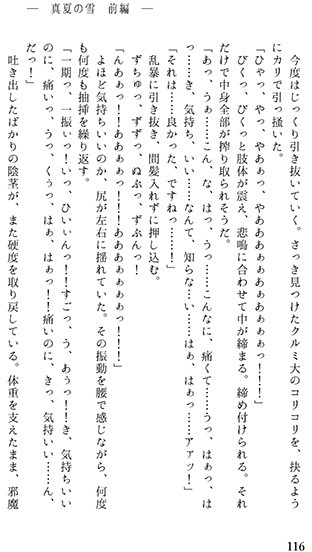 ― 真夏の雪　前編 ―
今度はじっくり引き抜いていく。さっき見つけたクルミ大のコリコリを、抉るよう
にカリで引っ掻いた。
「ひゃっ、やっ、やあぁっ、やあああぁぁあぁあぁぁっ！！！」
びくっ、びくっと肢体が震え、悲鳴に合わせて中が締まる。締め付けられる。それ
だけで中身全部が搾り取られそうだ。
「あっ、うぁ……こん、な、はっ、うっ……こんなに、痛くて……うっ、はぁっ、は
っ……き、気持ち、い……なんて、知らな……い……はぁ、はぁっ……アァッ！」
「それは……良かった、ですねっ……！」
乱暴に引き抜き、間髪入れずに押し込む。
ずちゅっ、ずずっ、ぬぷっ、ずぷんっ！
「んあぁっ！！ああぁっ！！！あああぁぁぁぁっ！！！」
よほど気持ちいいのか、尻が左右に揺れていた。その振動を腰で感じながら、何度
も何度も抽挿を繰り返す。
「一期っ、一振ぃっ！いっ、ひぃぃんっ！！すごっ、う、あぅっ！！き、気持ちいい
のに、痛いっ、うっ、くぅっ、はぁ、はぁっ！！痛いのに、きっ、気持ちいい……ん、
だっ！」
吐き出したばかりの陰茎が、また硬度を取り戻している。体重を支えたまま、邪魔
116